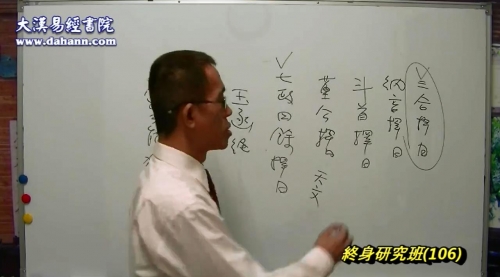 大漢易經書院
www.dahann.com
V三合擇日
納音擇日
斗首擇日
董公擇日 天文
V七政四餘擇日
終身研究班(106)